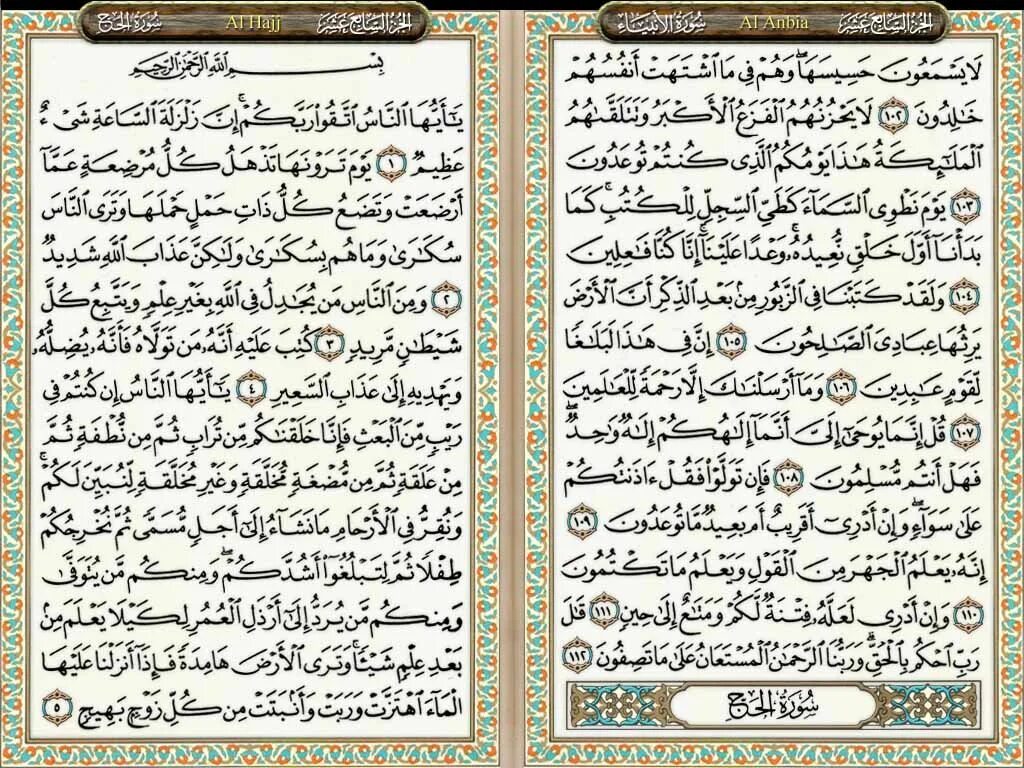 سُورَةُ الأَنْبِيَاءِ Al Anbia الجُزْءُ السَّابِعُ عَشَرَ
لَا يَسْمَعُونَ حَسِيسَهَا ۖ وَهُمْ فِي مَا اشْتَهَتْ أَنفُسُهُمْ
خَالِدُونَ ١٠٢ لَا يَحْزُنُهُمُ الْفَزَعُ الْأَكْبَرُ وَتَتَلَقَّاهُمُ
الْمَلَائِكَةُ هَٰذَا يَوْمُكُمُ الَّذِي كُنتُمْ تُوعَدُونَ
١٠٣ يَوْمَ نَطْوِي السَّمَاءَ كَطَيِّ السِّجِلِّ لِلْكُتُبِ ۚ كَمَا
بَدَأْنَا أَوَّلَ خَلْقٍ نُّعِيدُهُ ۚ وَعْدًا عَلَيْنَا ۚ إِنَّا كُنَّا فَاعِلِينَ
١٠٤ وَلَقَدْ كَتَبْنَا فِي الزَّبُورِ مِن بَعْدِ الذِّكْرِ أَنَّ الْأَرْضَ
يَرِثُهَا عِبَادِيَ الصَّالِحُونَ ١٠٥ إِنَّ فِي هَٰذَا لَبَلَاغًا
لِّقَوْمٍ عَابِدِينَ ١٠٦ وَمَا أَرْسَلْنَاكَ إِلَّا رَحْمَةً لِّلْعَالَمِينَ
١٠٧ قُلْ إِنَّمَا يُوحَىٰ إِلَيَّ أَنَّمَا إِلَٰهُكُمْ إِلَٰهٌ وَاحِدٌ ۖ
فَهَلْ أَنتُم مُّسْلِمُونَ ١٠٨ فَإِن تَوَلَّوْا فَقُلْ آذَنتُكُمْ
عَلَىٰ سَوَاءٍ ۖ وَإِنْ أَدْرِي أَقَرِيبٌ أَم بَعِيدٌ مَّا تُوعَدُونَ ١٠٩
إِنَّهُ يَعْلَمُ الْجَهْرَ مِنَ الْقَوْلِ وَيَعْلَمُ مَا تَكْتُمُونَ
١١٠ وَإِنْ أَدْرِي لَعَلَّهُ فِتْنَةٌ لَّكُمْ وَمَتَاعٌ إِلَىٰ حِينٍ ١١١ قَالَ
رَبِّ احْكُم بِالْحَقِّ ۗ وَرَبُّنَا الرَّحْمَٰنُ الْمُسْتَعَانُ عَلَىٰ مَا تَصِفُونَ ١١٢
سُورَةُ الحَجِّ
سُورَةُ الحَجِّ Al Hajj الجُزْءُ السَّابِعُ عَشَرَ
بِسْمِ اللَّهِ الرَّحْمَٰنِ الرَّحِيمِ
يَا أَيُّهَا النَّاسُ اتَّقُوا رَبَّكُمْ ۚ إِنَّ زَلْزَلَةَ السَّاعَةِ شَيْءٌ
عَظِيمٌ ١ يَوْمَ تَرَوْنَهَا تَذْهَلُ كُلُّ مُرْضِعَةٍ عَمَّا
أَرْضَعَتْ وَتَضَعُ كُلُّ ذَاتِ حَمْلٍ حَمْلَهَا وَتَرَى النَّاسَ
سُكَارَىٰ وَمَا هُم بِسُكَارَىٰ وَلَٰكِنَّ عَذَابَ اللَّهِ شَدِيدٌ
٢ وَمِنَ النَّاسِ مَن يُجَادِلُ فِي اللَّهِ بِغَيْرِ عِلْمٍ وَيَتَّبِعُ كُلَّ
شَيْطَانٍ مَّرِيدٍ ٣ كُتِبَ عَلَيْهِ أَنَّهُ مَن تَوَلَّاهُ فَأَنَّهُ يُضِلُّهُ
وَيَهْدِيهِ إِلَىٰ عَذَابِ السَّعِيرِ ٤ يَا أَيُّهَا النَّاسُ إِن كُنتُمْ فِي
رَيْبٍ مِّنَ الْبَعْثِ فَإِنَّا خَلَقْنَاكُم مِّن تُرَابٍ ثُمَّ مِن نُّطْفَةٍ ثُمَّ
مِنْ عَلَقَةٍ ثُمَّ مِن مُّضْغَةٍ مُّخَلَّقَةٍ وَغَيْرِ مُخَلَّقَةٍ لِّنُبَيِّنَ لَكُمْ ۚ
وَنُقِرُّ فِي الْأَرْحَامِ مَا نَشَاءُ إِلَىٰ أَجَلٍ مُّسَمًّى ثُمَّ نُخْرِجُكُمْ
طِفْلًا ثُمَّ لِتَبْلُغُوا أَشُدَّكُمْ ۖ وَمِنكُم مَّن يُتَوَفَّىٰ
وَمِنكُم مَّن يُرَدُّ إِلَىٰ أَرْذَلِ الْعُمُرِ لِكَيْلَا يَعْلَمَ مِن
بَعْدِ عِلْمٍ شَيْئًا ۚ وَتَرَى الْأَرْضَ هَامِدَةً فَإِذَا أَنزَلْنَا عَلَيْهَا
الْمَاءَ اهْتَزَّتْ وَرَبَتْ وَأَنبَتَتْ مِن كُلِّ زَوْجٍ بَهِيجٍ ٥